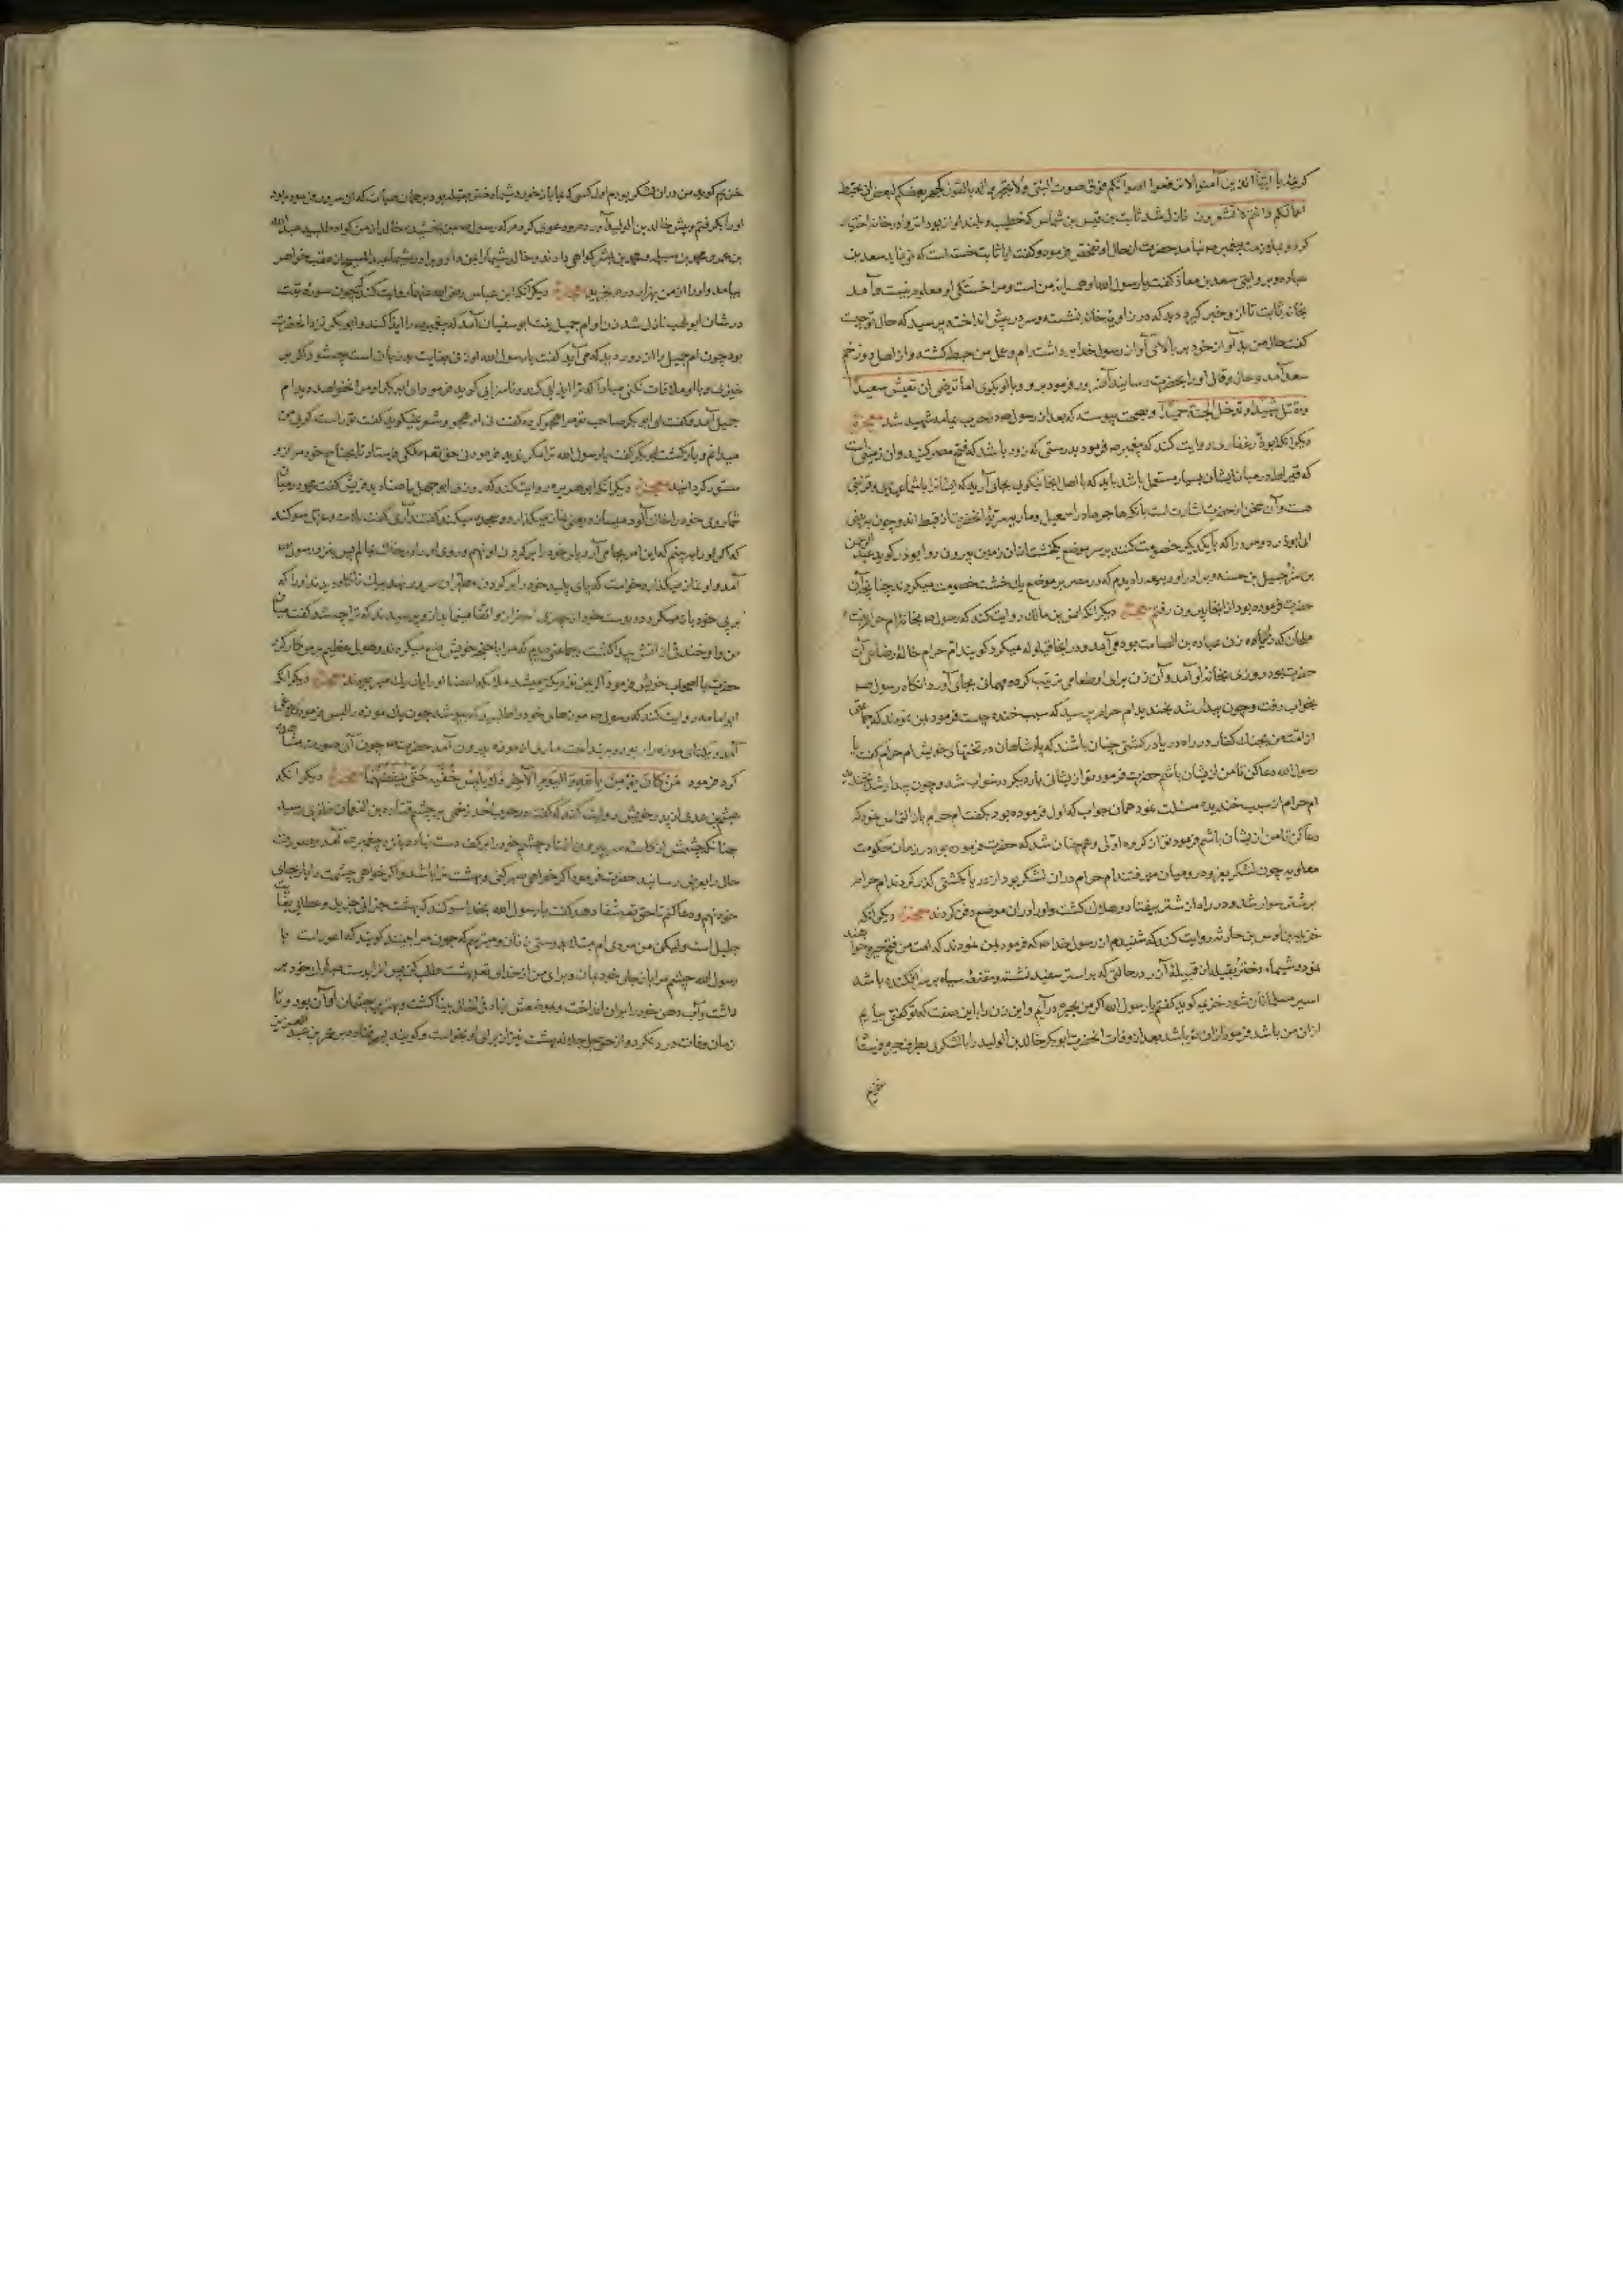 کریمه یا ایها الذین آمنوا لا ترفعوا اصواتکم فوق صوت النبی ولا تجهروا له بالقول کجهر بعضکم لبعض ان تحبط
اعمالکم وانتم لا تشعرون نازل شد ثابت بن قیس بن شماس که خطیب و بلند اواز بود انزوا در خانه اختیار
کرد و بملازمت پیغمبر صه نیامد حضرت از حال او تفحص فرمود و گفت ایا ثابت خسته است که نمی‌اید سعد بن
عباده و بروایتی سعد بن معاذ گفت یا رسول الله او همسایه من است و مرا خستگی او معلوم نیست و آمد
بخانه ثابت تا از و خبر گیرد دید که در زاویه خانه نشسته و سر در پیش انداخته پرسید که حال تو چیست
گفت حال من بد آواز خود بر بالای آواز رسول خدا برداشته‌ام و عمل من حبط گشته و از اهل دوزخم
سعد آمد و حال و قال او را بحضرت رسانید فرمود برو و با او بگوی اما ترضی ان تعیش سعیدا
و تقتل شهیدا و تدخل الجنة حمیدا و بصحت پیوسته که بعد از رسول صه در حرب یمامه شهید شد معجزه
دیگر انکه ابوذر غفاری روایت کند که پیغمبر صه فرمود بدرستی که زود باشد که فتح مصر کنید و ان زمینی است
که قیراط در میان ایشان بسیار مستعمل باشد باید که با اهل انجا نیکویی بجای آرید که ایشانرا با شما عهدی و قرابتی
هست و آن سخن از حضرت اشارت است بانکه هاجر مادر اسمعیل و ماریه سریه انحضرت از قبط اند و چون ببینی
ای ابوذر دو مرد را که با یکدیگر خصومت کنند بر سر موضع یک خشت از ان زمین بیرون رو ابوذر گوید عبد الرحمن
بن شرحبیل بن حسنه و برادر او ربیعه را دیدم که در مصر بر موضع یک خشت خصومت میکردند چنانچه آن
حضرت فرموده بود از انجا بیرون رفتم معجزه دیگر انکه انس بن مالک روایت کند که رسول صه بخانه ام حرام بنت
ملحان که زن عباده بن الصامت بود می‌آمد و در انجا قیلوله میکرد و گویند ام حرام خاله رضاعی آن
حضرت بود روزی بخانه او آمد و آن زن برای او طعامی ترتیب کرده مهمانی بجای آورد انگاه رسول صه
بخواب رفت و چون بیدار شد بخندید ام حرام پرسید که سبب خنده چیست فرمود بمن نمودند که جماعتی
از امت من بجنگ کفار در راه دریا در کشتی چنان باشند که پادشاهان در تختهای خویش ام حرام گفت یا
رسول الله دعا کن تا من از یشان باشم حضرت فرمود تو از یشانی بار دیگر در خواب شد و چون بیدار شد بخندید
ام حرام از سبب خنده مسئلت نمود همان جواب که اول فرموده بود بگفت ام حرام باز التماس نمود که
دعا کن تا من از یشان باشم فرمود تو از ان گروه اولی و همچنان شد که حضرت فرموده بود در زمان حکومت
معاویه چون لشکر بغزو رومیان میرفتند ام حرام دران لشکر بود از دریا بکشتی گذر کردند ام حرام
بر شتر سوار شد و در راه از شتر بیفتاد و هلاک گشت و او را دران موضع دفن کردند معجزه دیگر انکه
خزیم بن اوس بن حارثه روایت کند که شنیدم از رسول خدا صه که فرمود بمن نمودند که امت من فتح حیره خواهند
نمود و شیماء دختر بقیله از قبیله ازد در حالتی که بر استر سفید نشسته و مقنعه سیاه بر سر افکنده باشد
اسیر مسلمانان شود خزیم گوید گفتم یا رسول الله اگر من بحیره درآیم و این زن را باین صفت که تو گفتی بیابم
ازان من باشد فرمود ازان تو باشد بعد از وفات انحضرت ابوبکر خالد بن الولید را با لشکری بطرف حیره فرستاد
خزیم
خزیم گوید من دران لشکر بودم اول کسی که بما باز خورد شیماء دختر بقیله بود بر همان هیأت که ان سرور فرموده بود
او را بگرفتم و پیش خالد بن الولید آوردم و دعوی کردم که رسول صه بمن بخشیده خالد از من گواه طلبید عبد الله
بن عمر و محمد بن مسلمه و محمد بن بشر گواهی دادند و خالد شیما را بمن داد و برادر شیما عبد المسیح از عقب خواهر
بیامد و او را از من بهزار درم بخرید معجزه دیگر انکه ابن عباس رضی الله عنهما روایت کند که چون سوره تبت
در شان ابو لهب نازل شد زن او ام جمیل بنت ابو سفیان آمد که پیغمبر را ایذا کند و ابوبکر نزد انحضرت
بود چون ام جمیل را از دور دید که می‌آید گفت یا رسول الله این زن بغایت بد زبان است چه شود اگر بر
خیزی و با او ملاقات نکنی مبادا که ترا ایذایی کند و ناسزایی گوید فرمود ای ابوبکر او مرا نخواهد دید ام
جمیل آمد و گفت ای ابوبکر صاحب تو مرا هجو کرده گفت نی او هجو و شعر نمیگوید گفت تو راست گویی من
میدانم و بازگشت ابوبکر گفت یا رسول الله ترا مگر ندید فرمود نی حق تعه ملکی فرستاد تا بجناح خود مرا از و
مستور گردانید معجزه دیگر انکه ابو هریره روایت کند که روزی ابو جهل با صنادید قریش گفت محمد در میان
شما روی خود را خاک آلود میسازد یعنی نماز میگذارد و سجده میکند گفتند آری گفت بلات و عزی سوگند
که اگر او را ببینم که این امر بجای آرد پای خود را بر گردن او نهم و روی او را در خاک بمالم پس نزد رسول الله
آمد و او نماز میگذارد خواست که پای پلید خود را بر گردن مطهر ان سرور نهد بیک ناگاه دیدند او را که
بر پی خود باز میگردد و بدست خود از چیزی احتراز و اتقا مینماید از و پرسیدند که ترا چه شد گفت میان
من و او خندقی از اتش پیدا گشت و جماعتی دیدم که مرا با جنحه خویش منع میکردند و هول عظیم بر من کار کرد
حضرت با اصحاب خویش فرمود اگر بمن نزدیکتر میشد ملائکه اعضاء او را یک یک میربودند معجزه دیگر انکه
ابو امامه روایت کند که رسول صه موزهای خود را طلبید که بپوشد چون یک موزه را لبس فرمود کلاغی
آمد و یکتای موزه را ببرد و بینداخت ماری از موزه بیرون آمد حضرت صه چون آن صورت مشاهده
کرد فرمود من کان یؤمن بالله والیوم الآخر فلا یلبس خفیه حتی ینفضهما معجزه دیگر انکه
هیثم بن عدی از پدر خویش روایت کند که گفت در حرب احد زخمی بر چشم قتاده بن النعمان ظفری رسید
چنانکه چشمش از کاسه سر بیرون افتاد چشم خود را بر کف دست نهاده نزد پیغمبر صه آمد و صورت
حال را بعرض رسانید حضرت فرمود اگر خواهی صبر کنی و بهشت ترا باشد و اگر خواهی چشمت را باز جای
خود نهم و دعا کنم تا حق تعه شفا دهد گفت یا رسول الله بخدا سوگند که بهشت جزائی جزیل و عطایی بغایت
جلیل است ولیکن من مردی ام مبتلا بدوستی زنان و میترسم که چون مرا ببینند گویند که اعور است یا
رسول الله چشم مرا باز جای خود نهان و برای من از خدای تعه بهشت طلب کن پس از دست مبارک خود بر
داشت و آب دهن خود را بران انداخت و بموضعش نهاد فی الحال بینا گشت و بهترین چشمان او آن بود و تا
زمان وفات درد نکرد و از حق جل جلاله بهشت نیز از برای او بخواست و گویند پسر قتاده بر عمر بن عبد العزیز